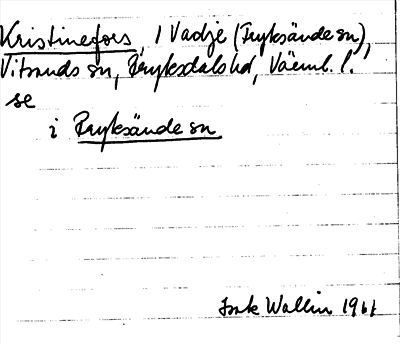 Kristinefors, i Vadje (Fryksände sn),
Vitsands sn, Fryksdals hd, Värml. l.
se
i Fryksände sn
Wallin 1961